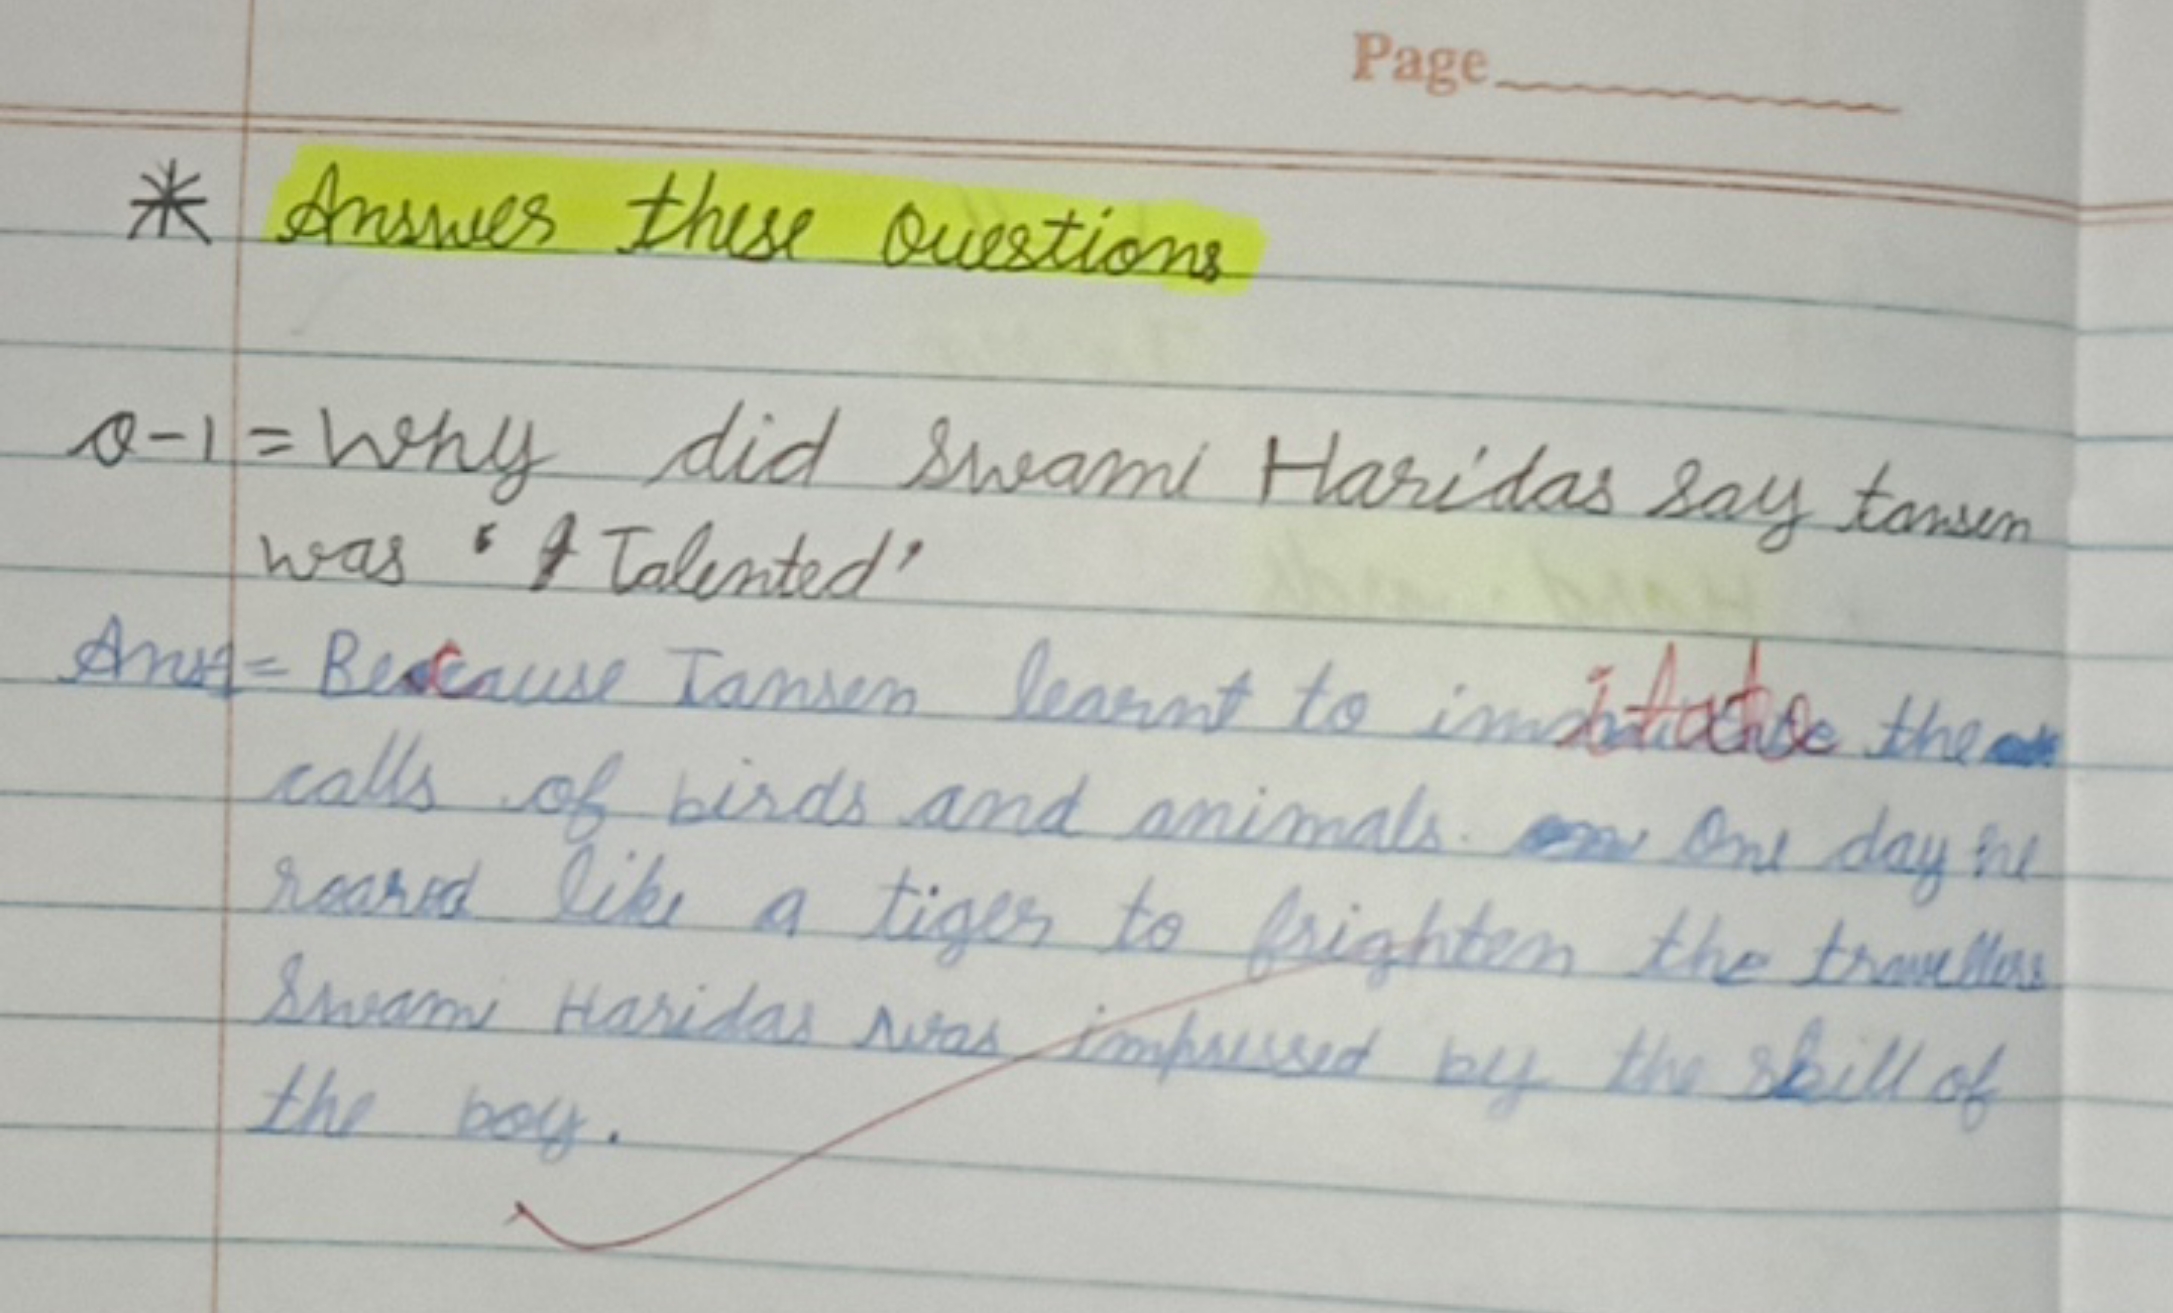 Page
* Answer these Questions
Q-1 = Why did Swami Haridas say tansen
was ' Talented'
Ans = Because Tansen learnt to imitate the
calls of birds and animals. One day he
roared like a tiger to frighten the travellers
Swami Haridas was impressed by the skill of
the boy.